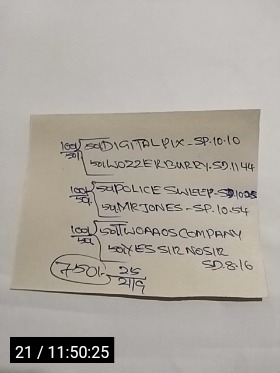 100/50 50/ DIGITAL PIX - SP.10.10
50/ WOZZERBURRY.SD.11.44
100/50 50/ POLICE SWEEP-SD10
50/ MR JONES - SP.10.54
100/50 50/ TWOAAOSCOMPANY
50/ YES SIR NO SIR
SD.8.16
750/- 25
21/9
21 / 11:50:25